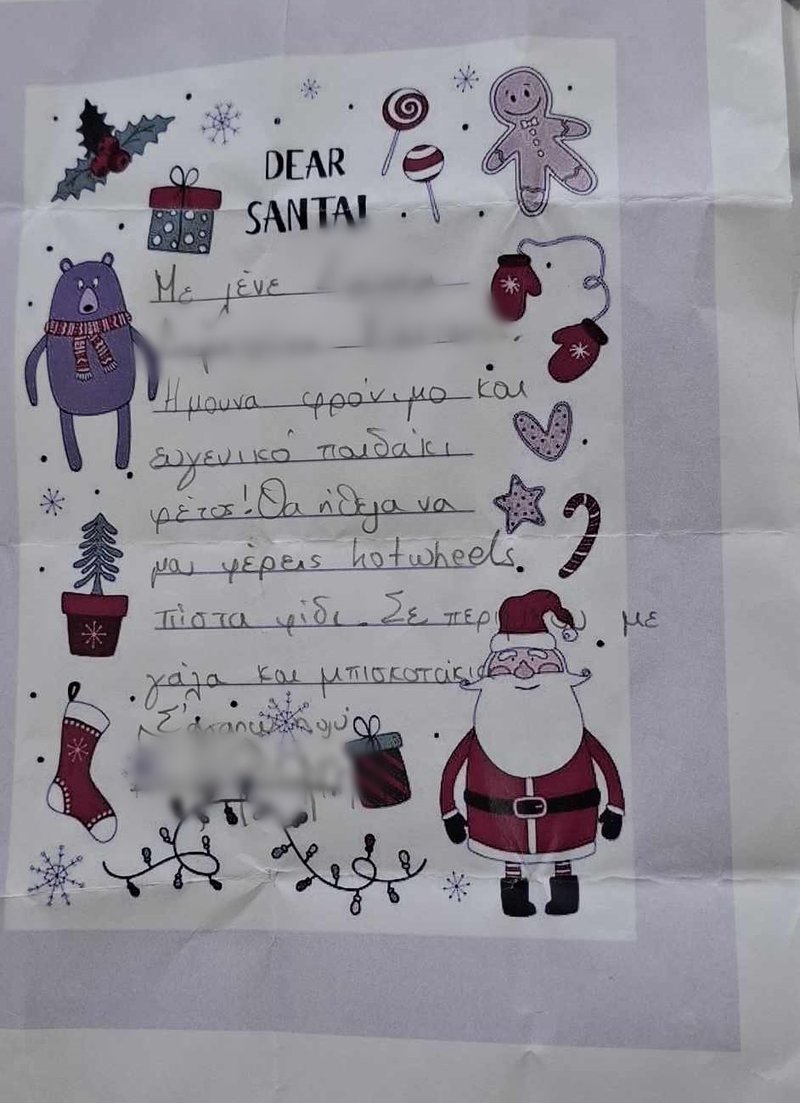 DEAR
SANTA!
Με λένε
Ήμουνα φρόνιμο και
ευγενικό παιδάκι
φέτος! Θα ήθελα να
μου φέρεις hotwheels
πίστα φίδι. Σε με
γάλα και μπισκοτάκια
Σ'αγαπώ πολύ